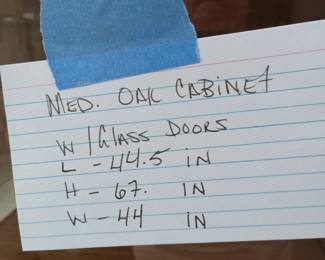 MED. OAK CABINET
W/GLASS DOORS
L - 44.5 IN
H - 67. IN
W - 44 IN